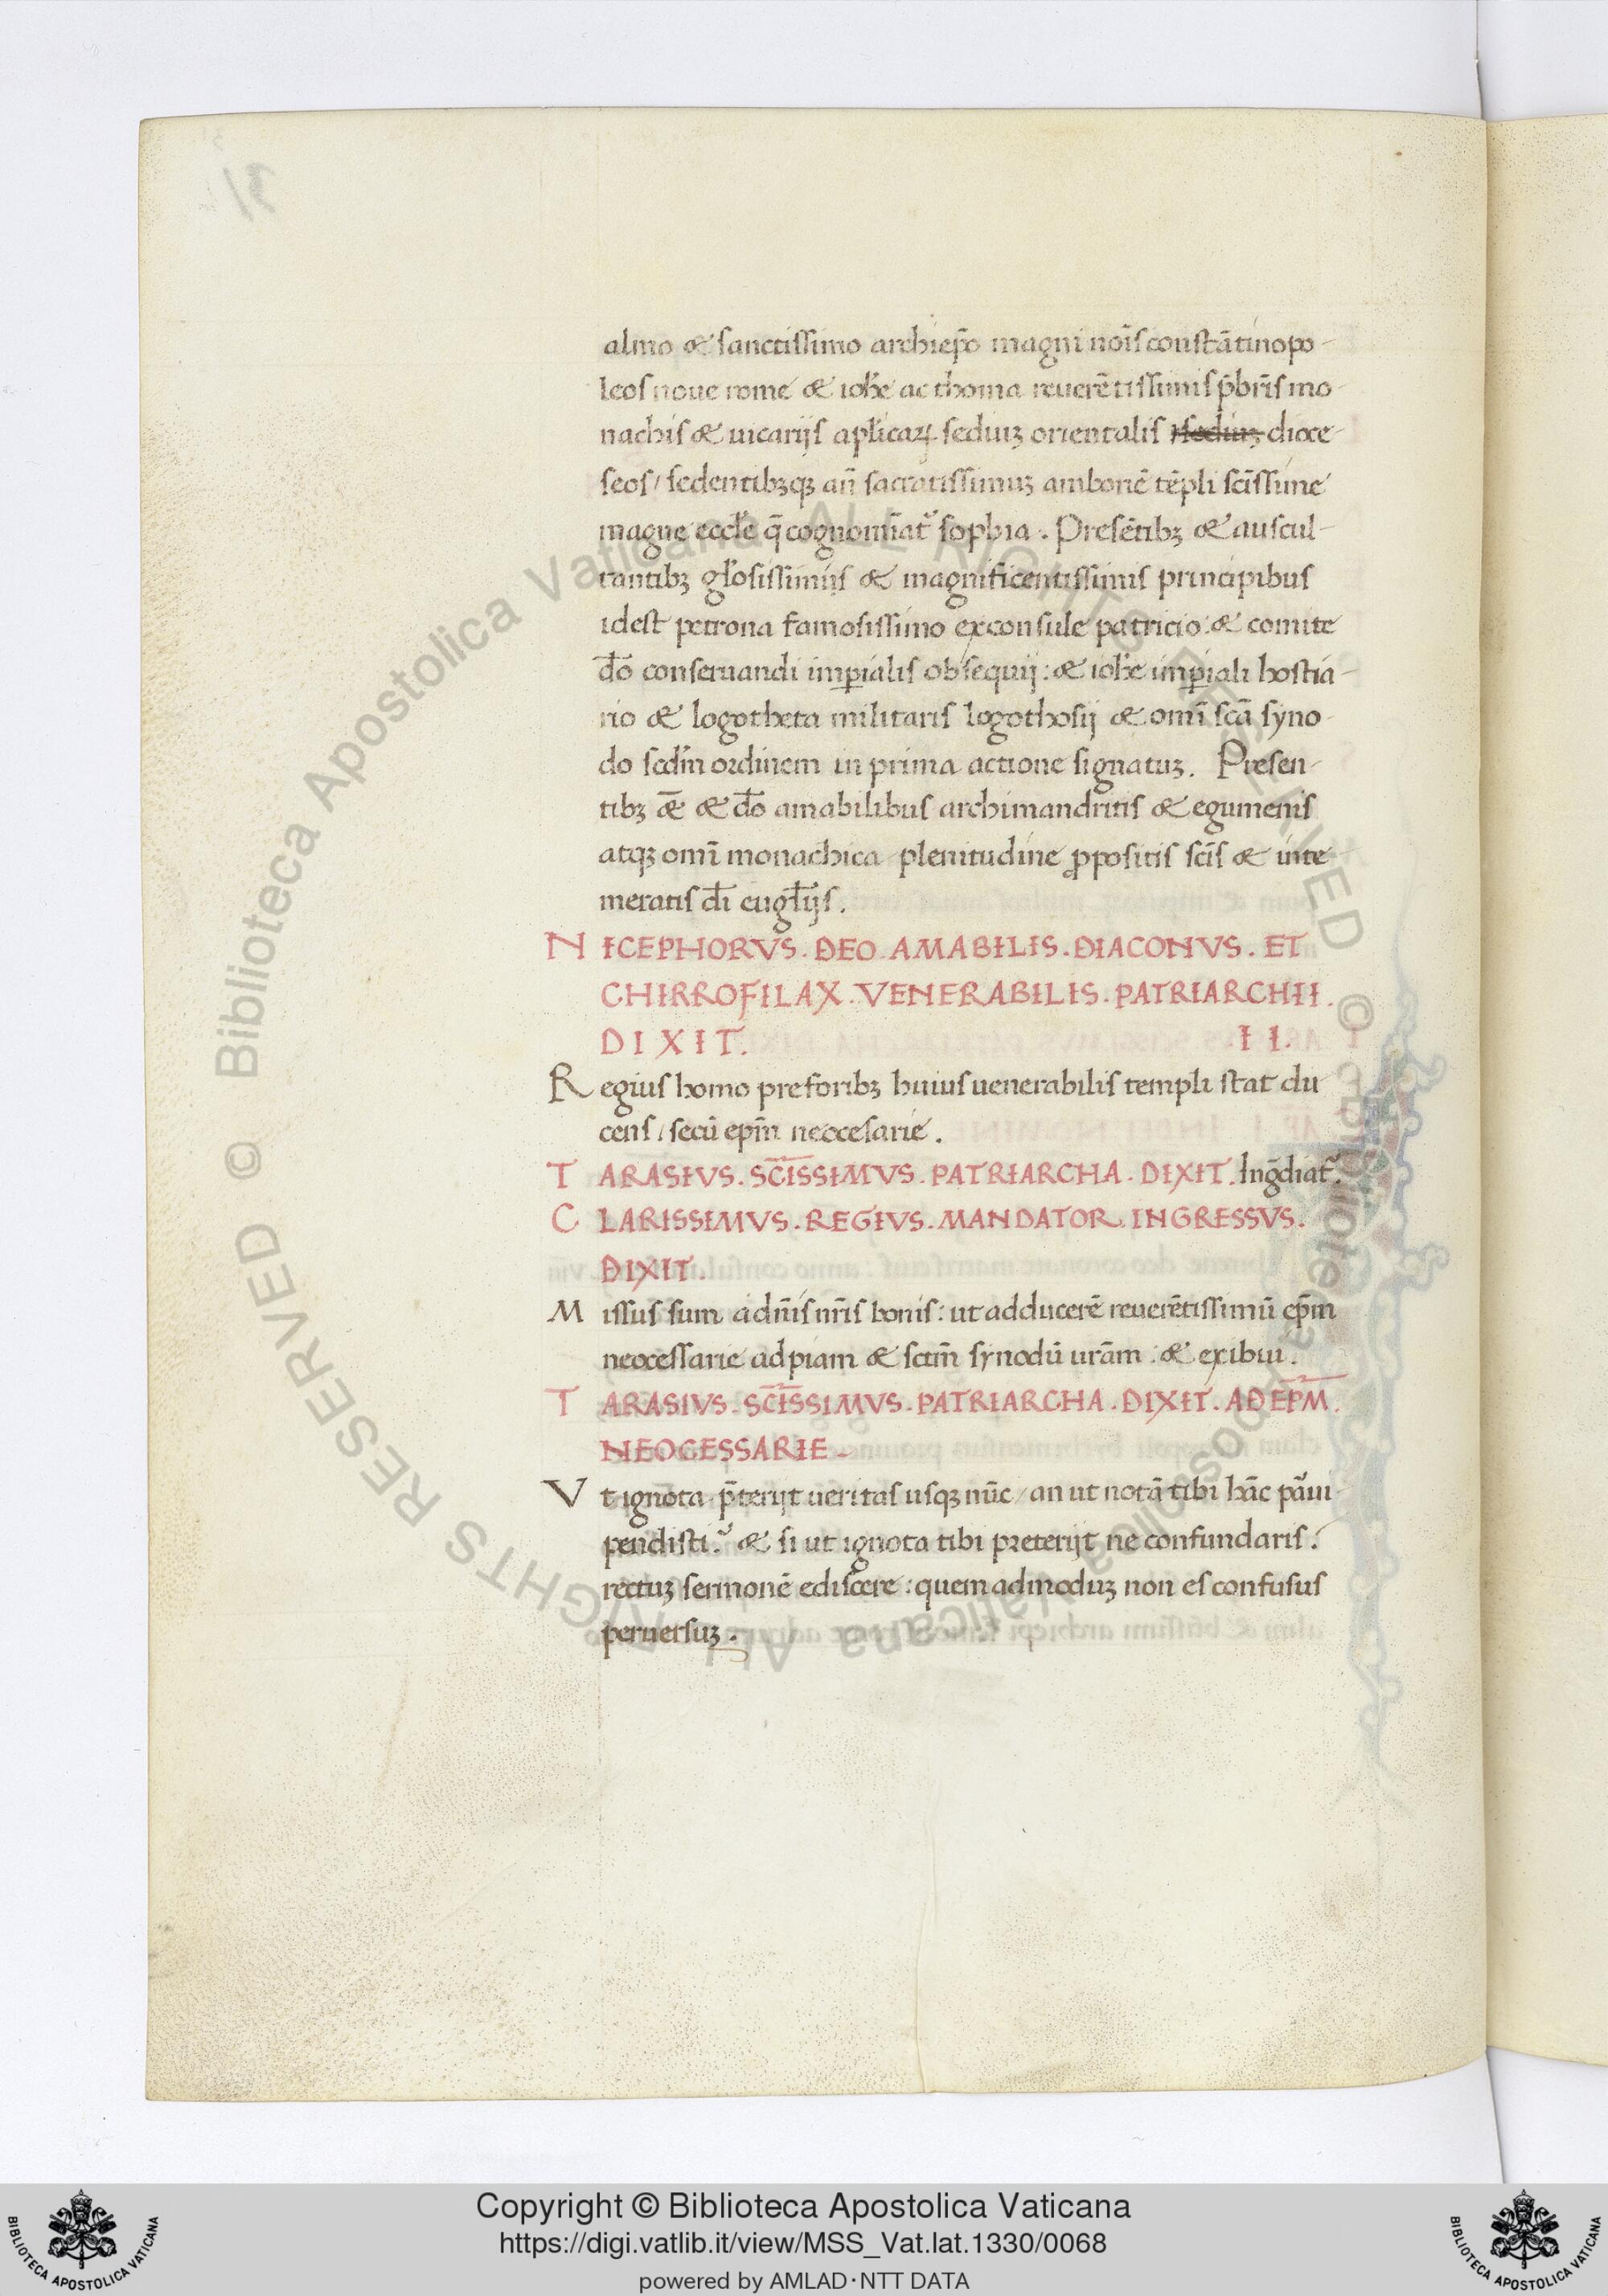 almo & sanctissimo archiep̄o magni nōis constātinopo-
leos noue rome & ioħe ac thoma reuerētissimis p̄bris̄ mo-
nachis & uicarijs apl̄icaꝝ seduiꝫ orientalis diоce-
seos / sedentibꝫqꝫ an̄ sacratissimuꝫ ambonē tēpli scīssime
magne eccl̄e q̄ cognomīat᷑ sophia. Presētibꝫ & auscul-
tantibꝫ gl̄osissimis & magnificentissimis principibus
idest petrona famosissimo exconsule patricio: & comite
do̅ conseruandi imꝑialis obsequij: & ioħe imꝑiali hostia-
rio & logotheta militaris logothosij & omī scā syno-
do scd̄m ordinem in prima actione signatuꝫ. Presen-
tibꝫ & & do̅ amabilibus archimandritis & egumenis
atqꝫ omī monachica plenitudine ꝓpositis scīs & inte
meratis di̅ eugl̄ijs.
NICEPHORVS. DEO. AMABILIS. DIACONVS. ET
CHIRROFILAX. VENERABILIS. PATRIARCHII.
DIXIT. II.
Regius homo preforibꝫ huius uenerabilis templi stat du
cens / secū ep̄m neocesarie.
TARASIVS. SC̄ISSIMVS. PATRIARCHA. DIXIT. Ingḡdiat᷑.
CLARISSIMVS. REGIVS. MANDATOR. INGRESSVS.
DIXIT.
Missus sum a dn̄is nr̄is bonis: ut adducerē reuerētissimū ep̄m
neocessarie ad piam & sctm̄ synodū urām: & exibui.
TARASIVS. SC̄ISSIMVS. PATRIARCHA. DIXIT. AD EP̄M.
NEOCESSARIE.
Vt ignota p̄terijt ueritas usqꝫ nūc / an ut notā tibi hāc paui
pendisti? & si ut ignota tibi preterijt ne confundaris
rectuꝫ sermonē ediscere: quemadmoduꝫ non es confusus
peruersuꝫ.
Biblioteca Apostolica Vaticana ALL RIGHTS RESERVED ©
Copyright © Biblioteca Apostolica Vaticana
https://digi.vatlib.it/view/MSS_Vat.lat.1330/0068
powered by AMLAD·NTT DATA
BIBLIOTECA APOSTOLICA VATICANA
BIBLIOTECA APOSTOLICA VATICANA